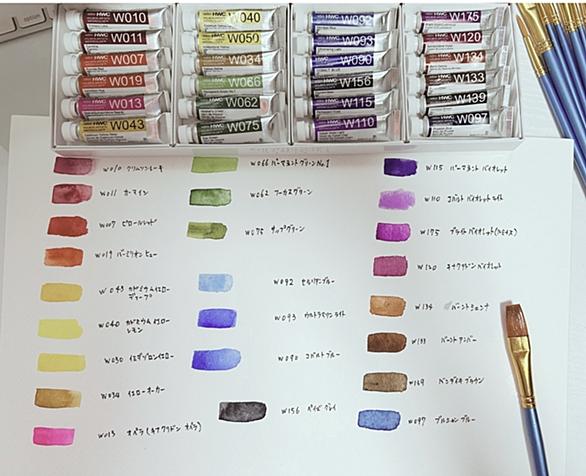 option
W010
W011
W007
W019
W013
W043
W040
W050
W034
W066
W062
W075
W092
W093
W090
W156
W115
W110
W175
W120
W134
W133
W139
W097
HWC
W010 クリムソンレーキ
W011 カーマイン
W007 ピロールレッド
W019 バーミリオン ヒュー
W043 カドミウムイエロー
ディープ
W040 カドミウム イエロー
レモン
W030 イミダゾロンイエロー
W034 イエローオーカー
W013 オペラ (キナクリドン オペラ)
W066 パーマネント グリーン No.1
W062 フーカスグリーン
W075 サップグリーン
W092 セルリアンブルー
W093 ウルトラマリン ライト
W090 コバルト ブルー
W156 ペイニズ グレイ
W115 パーマネント バイオレット
W110 コバルト バイオレット ライト
W175 ブライト バイオレット
W120 キナクリドン バイオレット
W134 バーント シェンナ
W133 バーント アンバー
バンダイキ ブラウン
W097 プルシャン ブルー